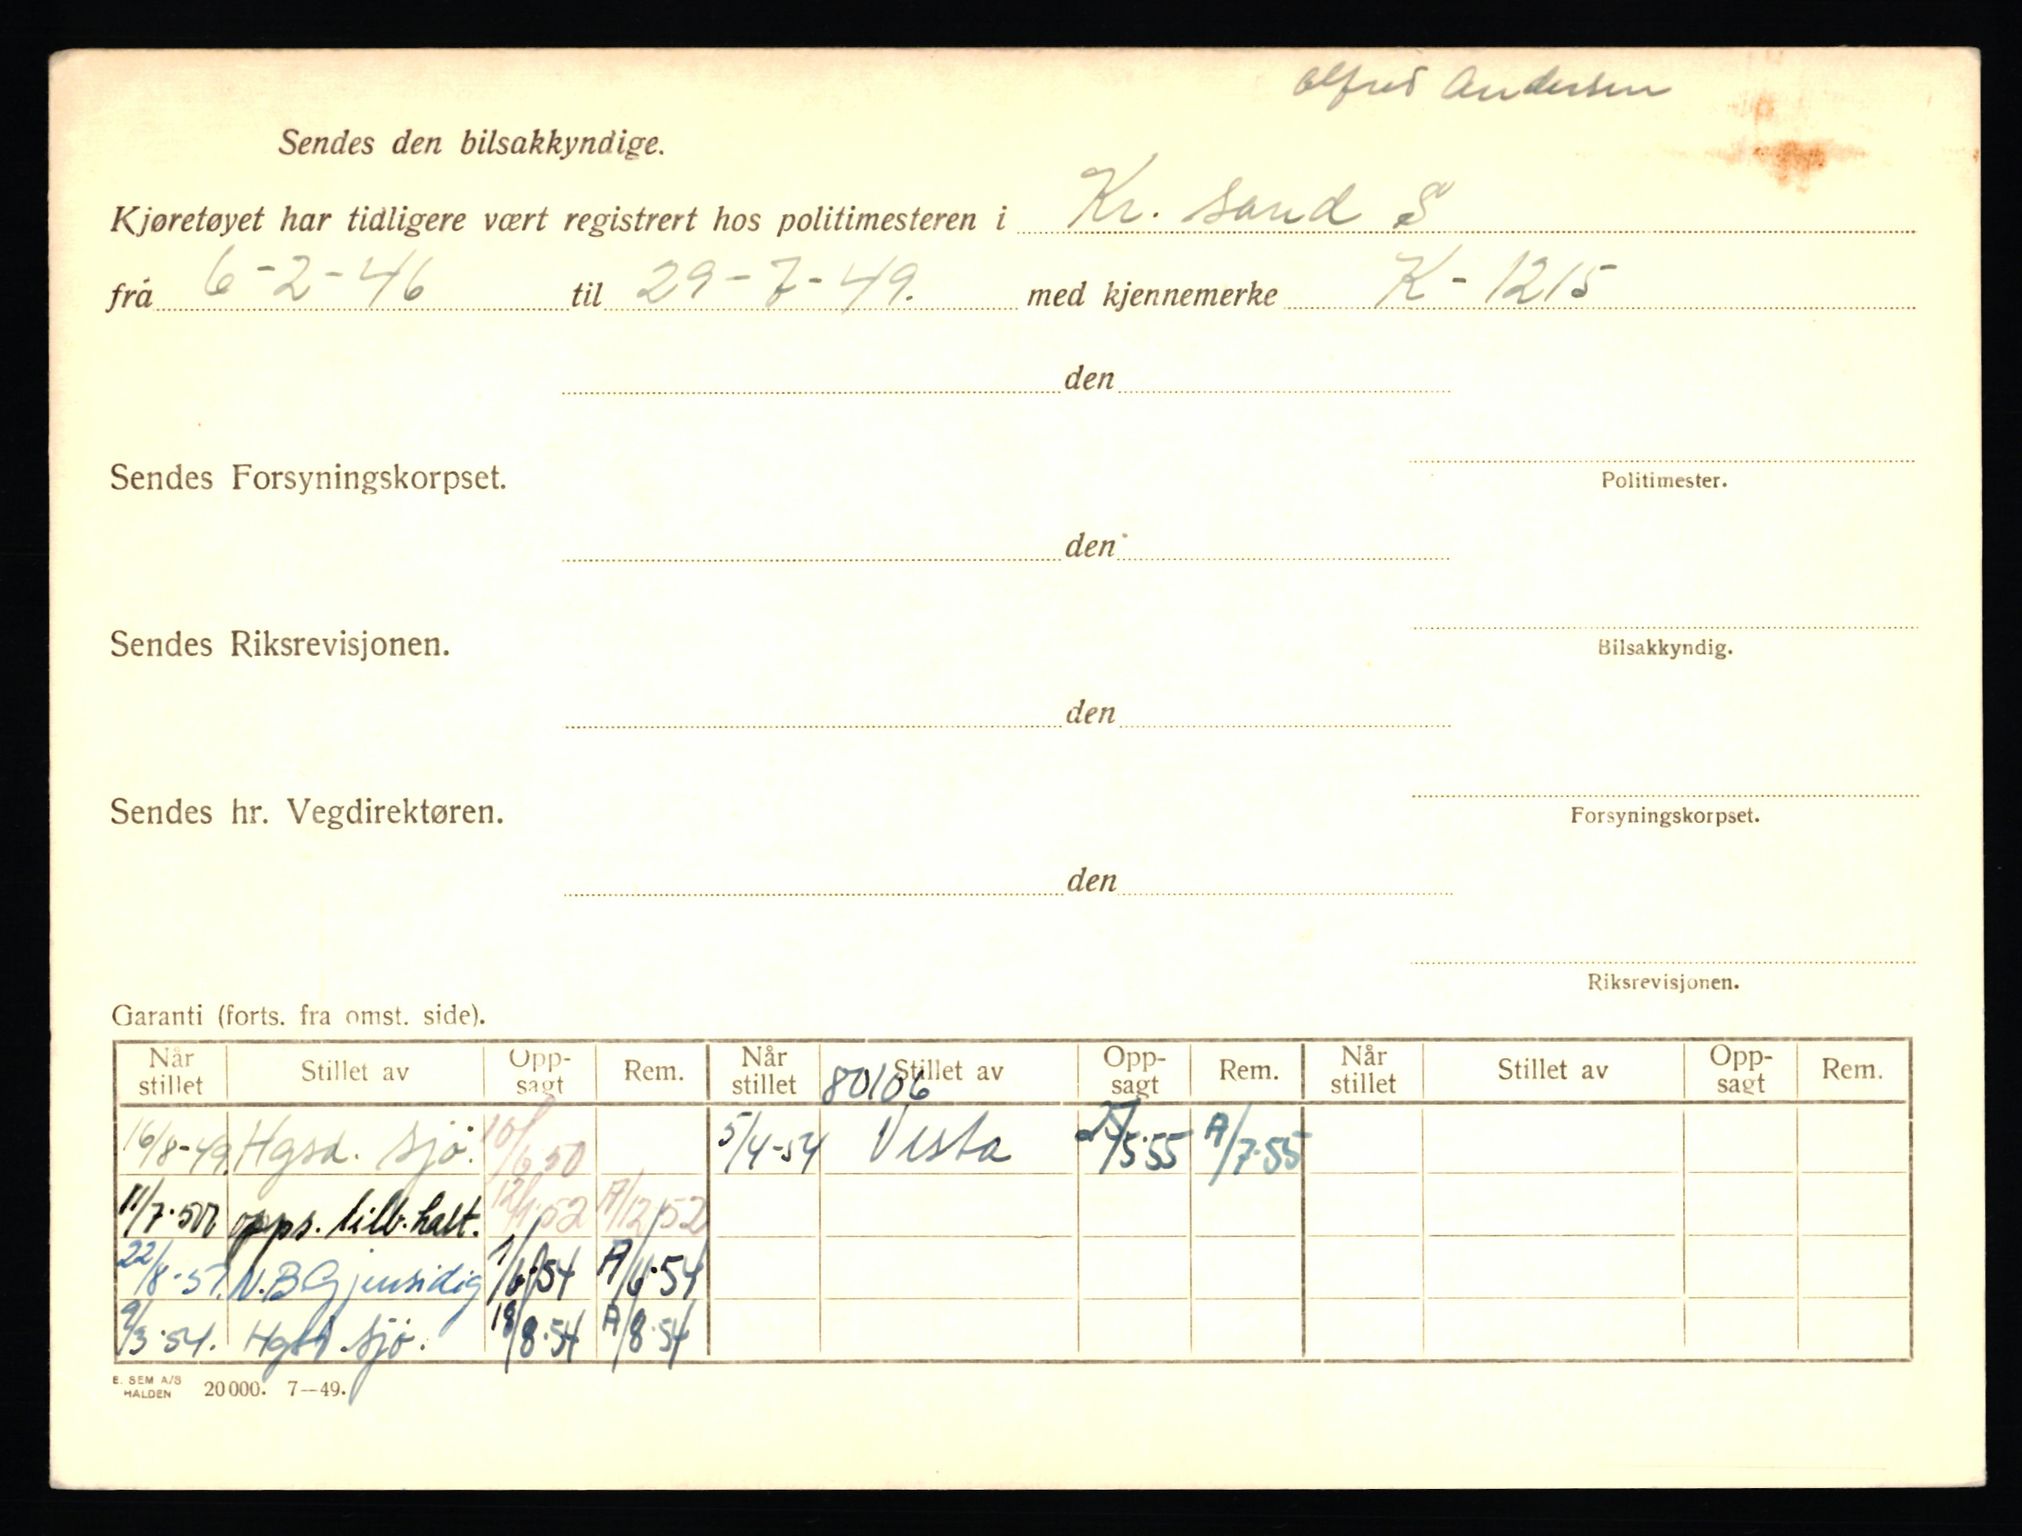 Alfred Andersen
Sendes den bilsakkyndige.
Kjøretøyet har tidligere vært registrert hos politimesteren i Kr. sand S
frå 6-2-46 til 29-7-49. med kjennemerke K-1215
den
Sendes Forsyningskorpset.
Politimester.
den
Sendes Riksrevisjonen.
Bilsakkyndig.
den
Sendes hr. Vegdirektøren.
Forsyningskorpset.
den
Riksrevisjonen.
Garanti (forts. fra omst. side).
Når stillet Stillet av Opp-sagt Rem. Når stillet Stillet av Opp-sagt Rem. Når stillet Stillet av Opp-sagt Rem.
80106
16/8-49 Hgsd. Sjø. 10/6 50 5/4-54 Vesta 25/5-55 A/7-55
11/7-50 opps. tilb. kalt. 12/11-52 A/12 52
22/8-51. N.B Gjensidig 1/6-54 A/6-54
9/3-54. Hgsd. Sjø. 18/8-54 A/8-54
E. SEM A/S
HALDEN 20000. 7—49.